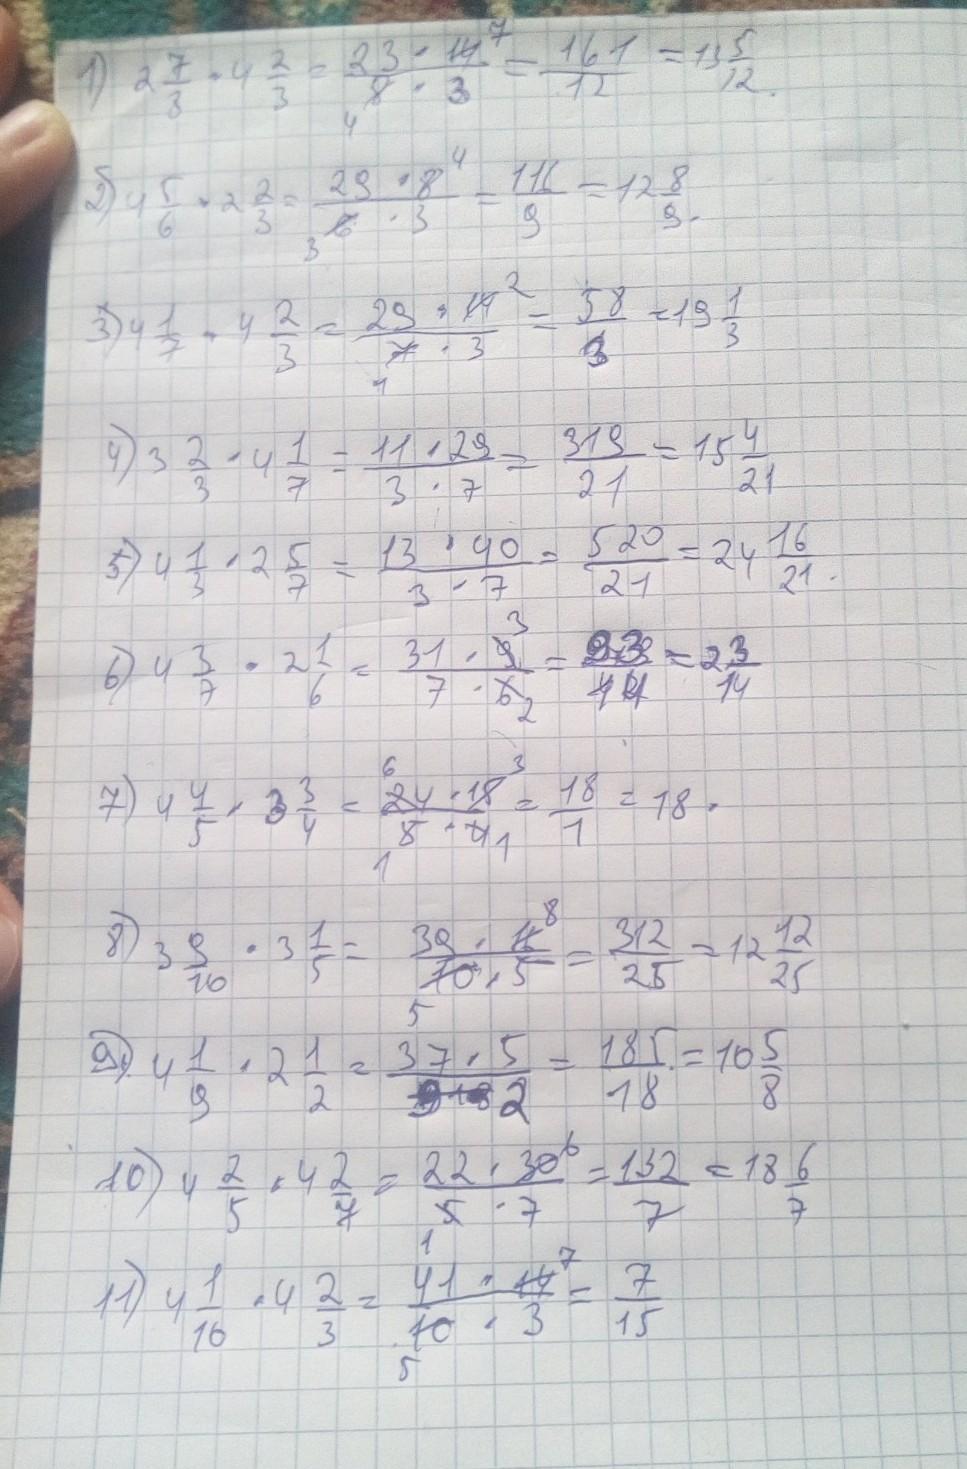 1) 2 7/3 · 4 2/3 = 23 · 14 7 / 4 8 · 3 = 161/12 = 13 5/12.
2) 4 5/6 · 2 2/3 = 29 · 8 4 / 3 6 · 3 = 116/9 = 12 8/9.
3) 4 1/7 · 4 2/3 = 29 · 14 2 / 7 1 · 3 = 58/3 = 19 1/3
4) 3 2/3 · 4 1/7 = 11 · 29 / 3 · 7 = 319/21 = 15 4/21
5) 4 1/3 · 2 5/7 = 13 · 40 / 3 · 7 = 520/21 = 24 16/21.
6) 4 3/7 · 2 1/6 = 31 · 9 3 / 7 · 6 2 = 93/14 = 2 3/14
7) 4 4/5 · 3 3/4 = 6 24 · 15 3 / 1 5 · 4 1 = 18/1 = 18.
8) 3 9/10 · 3 1/5 = 39 · 16 8 / 5 10 · 5 = 312/25 = 12 12/25
9) 4 1/9 · 2 1/2 = 37 · 5 / 9 · 2 = 185/18 = 10 5/8
10) 4 2/5 · 4 2/7 = 22 · 30 6 / 5 1 · 7 = 132/7 = 18 6/7
11) 4 1/10 · 4 2/3 = 41 · 14 7 / 5 10 · 3 = 7/15